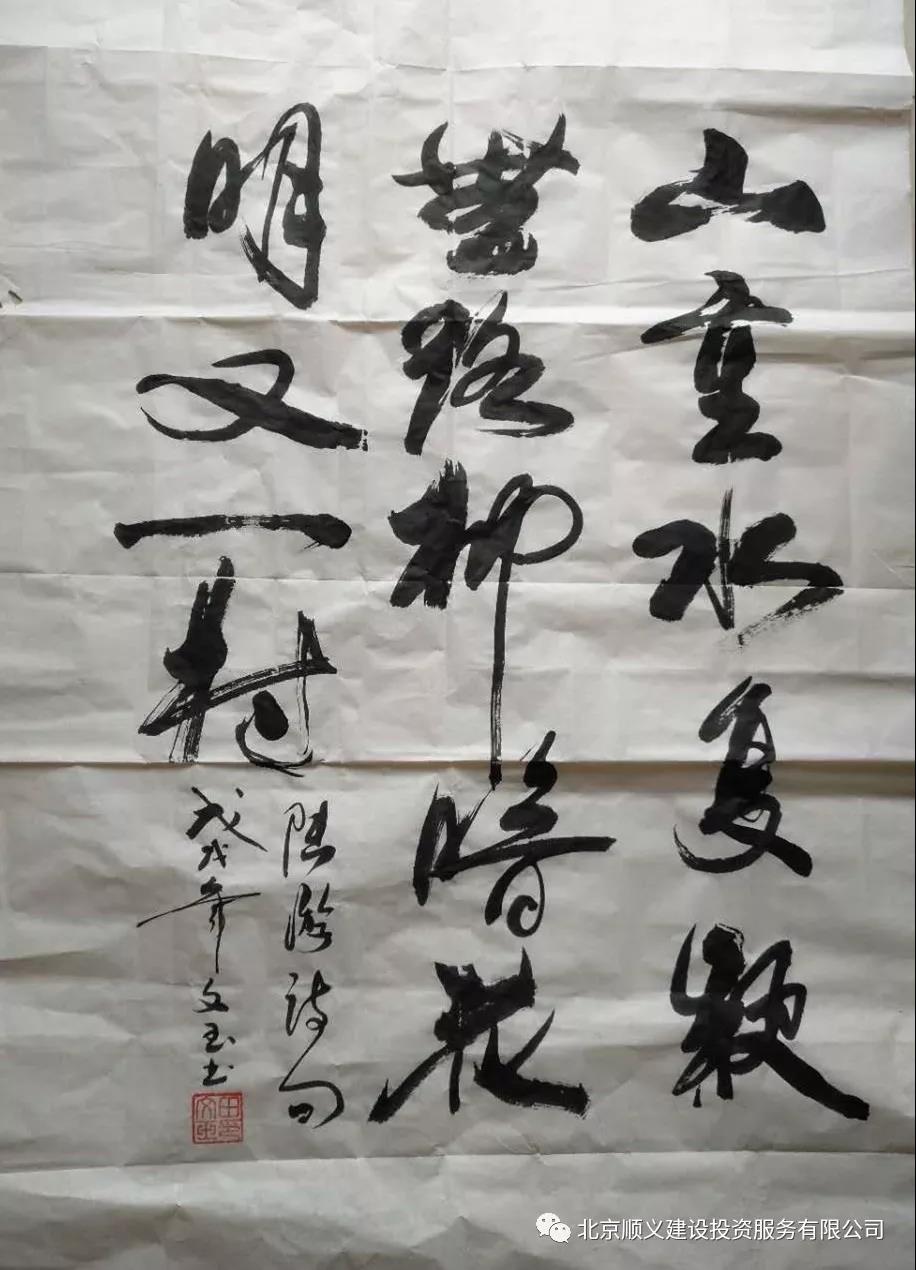 山重水复疑
無路柳暗花
明又一村
陆游诗句
戊戌年文玉书
田文玉印
北京顺义建设投资服务有限公司